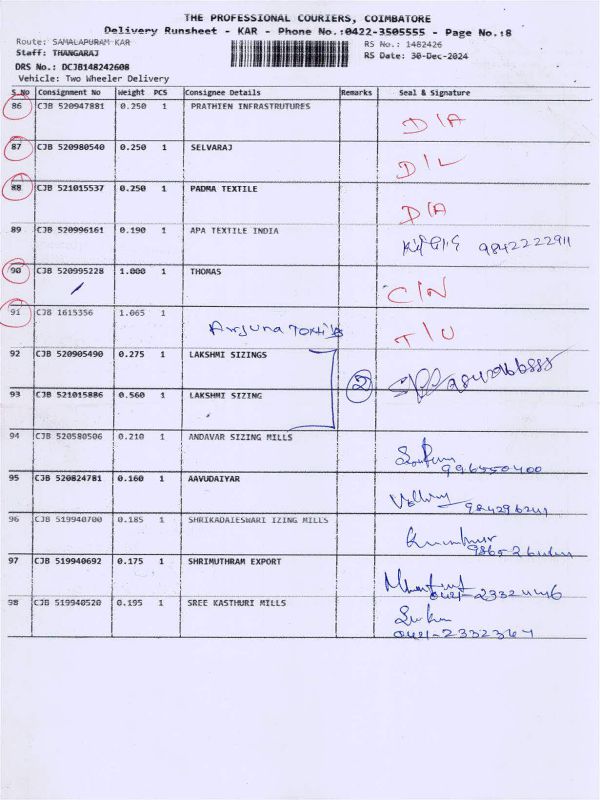 THE PROFESSIONAL COURIERS, COIMBATORE
Delivery Runsheet - KAR - Phone No.:0422-3505555 - Page No.:8
Route: SAMALAPURAM KAR RS No.: 1482426
Staff: THANGARAJ RS Date: 30-Dec-2024
DRS No.: DCJB148242608
Vehicle: Two Wheeler Delivery
S.No Consignment No Weight PCS Consignee Details Remarks Seal & Signature
86 CJB 520947881 0.250 1 PRATHIEN INFRASTRUTURES D/A
87 CJB 520980540 0.250 1 SELVARAJ D/L
88 CJB 521015537 0.250 1 PADMA TEXTILE D/A
89 CJB 520996161 0.190 1 APA TEXTILE INDIA 9842222911
90 CJB 520995228 1.000 1 THOMAS C/N
91 CJB 1615356 1.065 1 Arjuna T/U
92 CJB 520905490 0.275 1 LAKSHMI SIZINGS 2
93 CJB 521015886 0.560 1 LAKSHMI SIZING
94 CJB 520580506 0.210 1 ANDAVAR SIZING MILLS
95 CJB 520824781 0.160 1 AAVUDAIYAR
96 CJB 519940700 0.185 1 SHRIKADAIESWARI IZING MILLS
97 CJB 519940692 0.175 1 SHRIMUTHRAM EXPORT
98 CJB 519940520 0.195 1 SREE KASTHURI MILLS